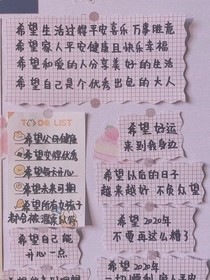 希望生活过得平安喜乐 万事胜意
希望家人平安健康且快乐幸福
希望和爱的人分享美好的生活
希望自己是个优秀出色的大人
TO DO LIST
希望父母健康
希望变得优秀
希望每天开心
希望未来可期
希望所有女孩子
都会被温柔以待
希望自己能
开心一点
希望 好运
来到我身边
希望以后的日子
越来越好 不负众望
希望 2020年
不要再这么糟了
希望 2020年